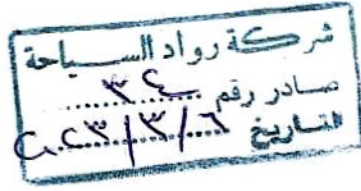 شركة رواد السياحة
صادر رقم ٣٤
التاريخ ٦/٣/٢٠٢٣